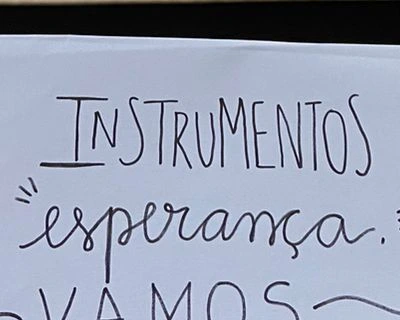 INSTRUMENTOS
esperança.
VAMOS